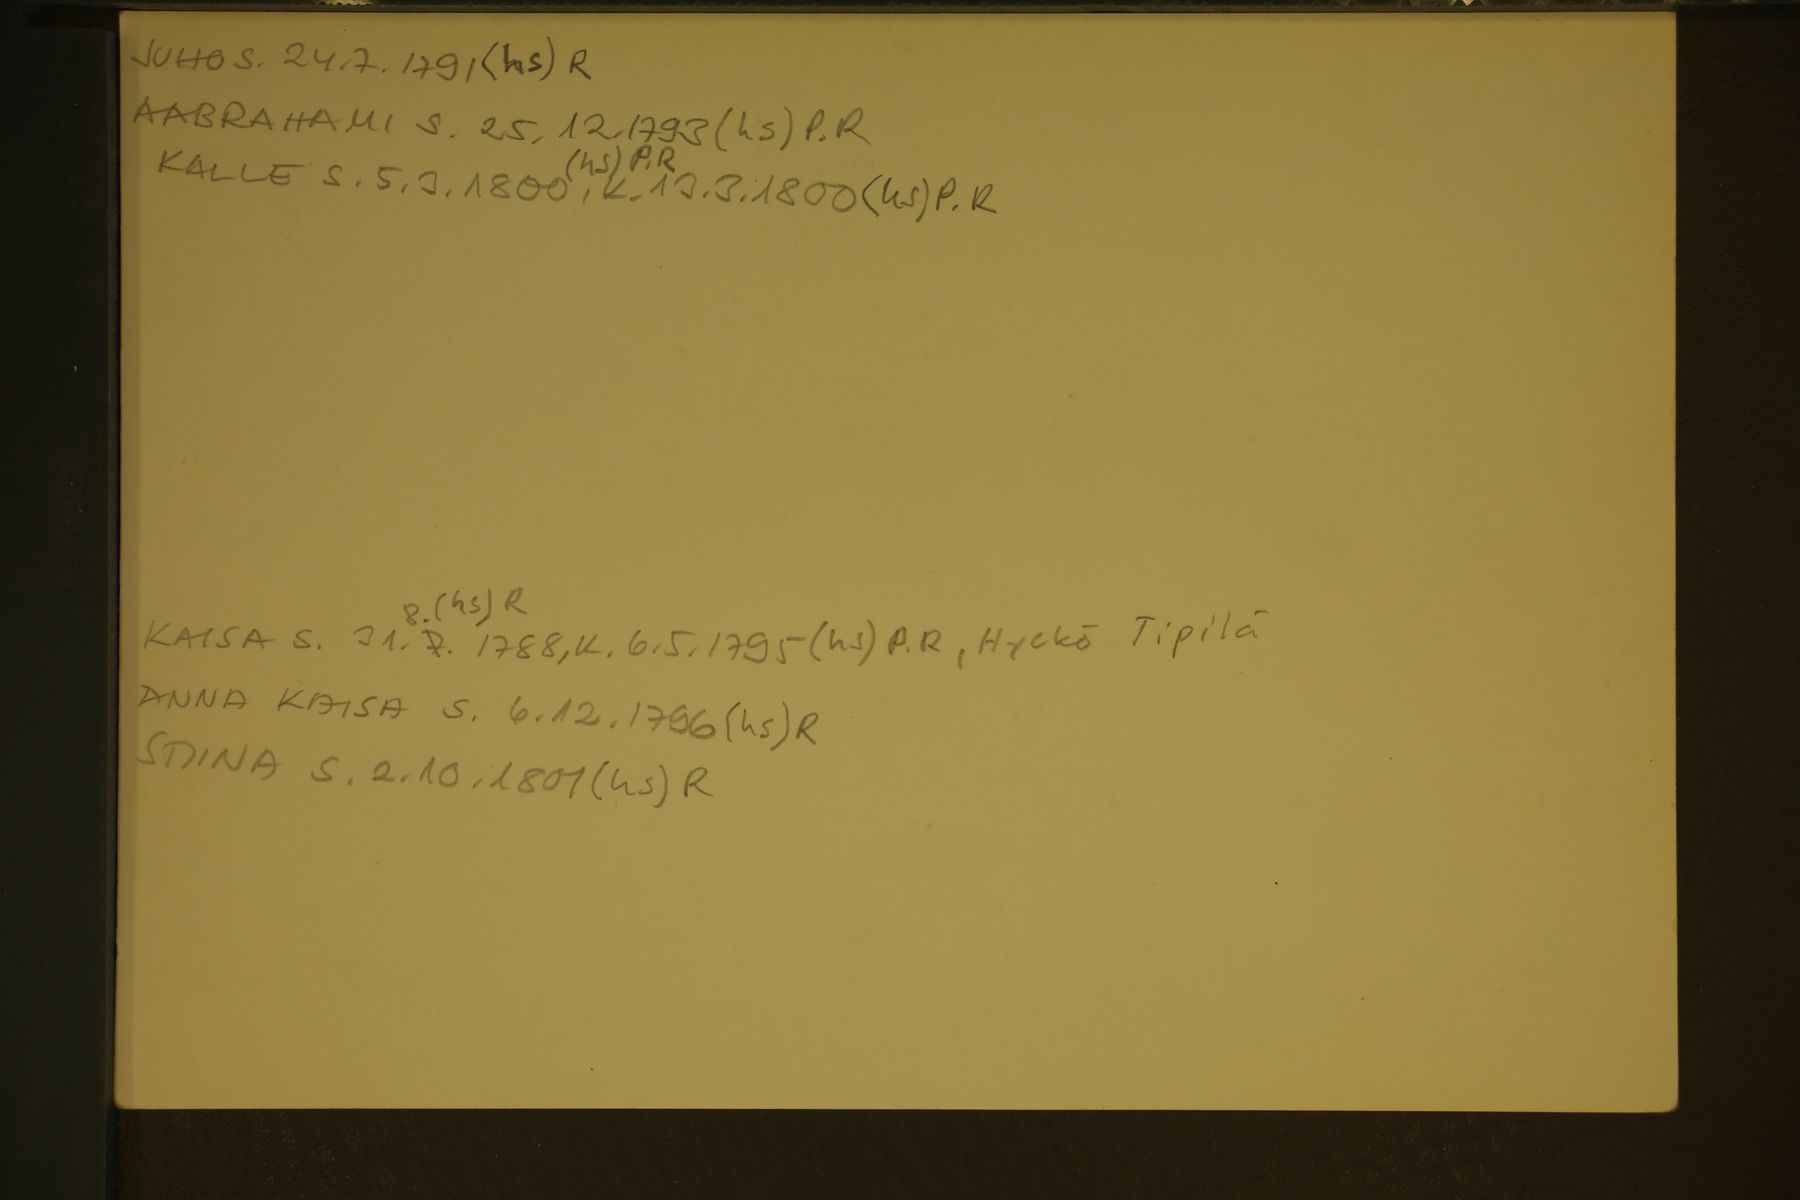 JUHO S. 24.7. 1791(hs) R
AABRAHAMI S. 25.12.1793(hs) P.R
(hs) P.R
KALLE S. 5.3.1800, K. 13.3.1800(hs) P.R
8.(hs) R
KAISA S. 31.7. 1788, K. 6.5.1795(hs) P.R, Hyckö Tipilä
ANNA KAISA S. 6.12.1796(hs) R
STIINA S. 2.10.1801(hs) R